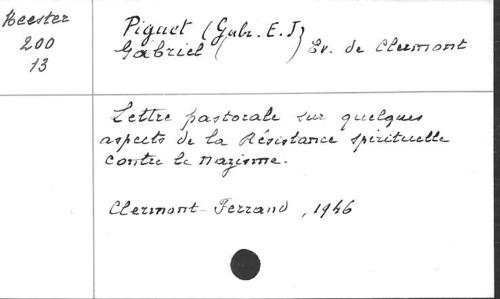 Heester
200
13
Piguet (Gabr. E. J)
Gabriel ( ) Ev. de Clermont
Lettre pastorale sur quelques
aspects de la Résistance spirituelle
contre le nazisme.
Clermont-Ferrand, 1946